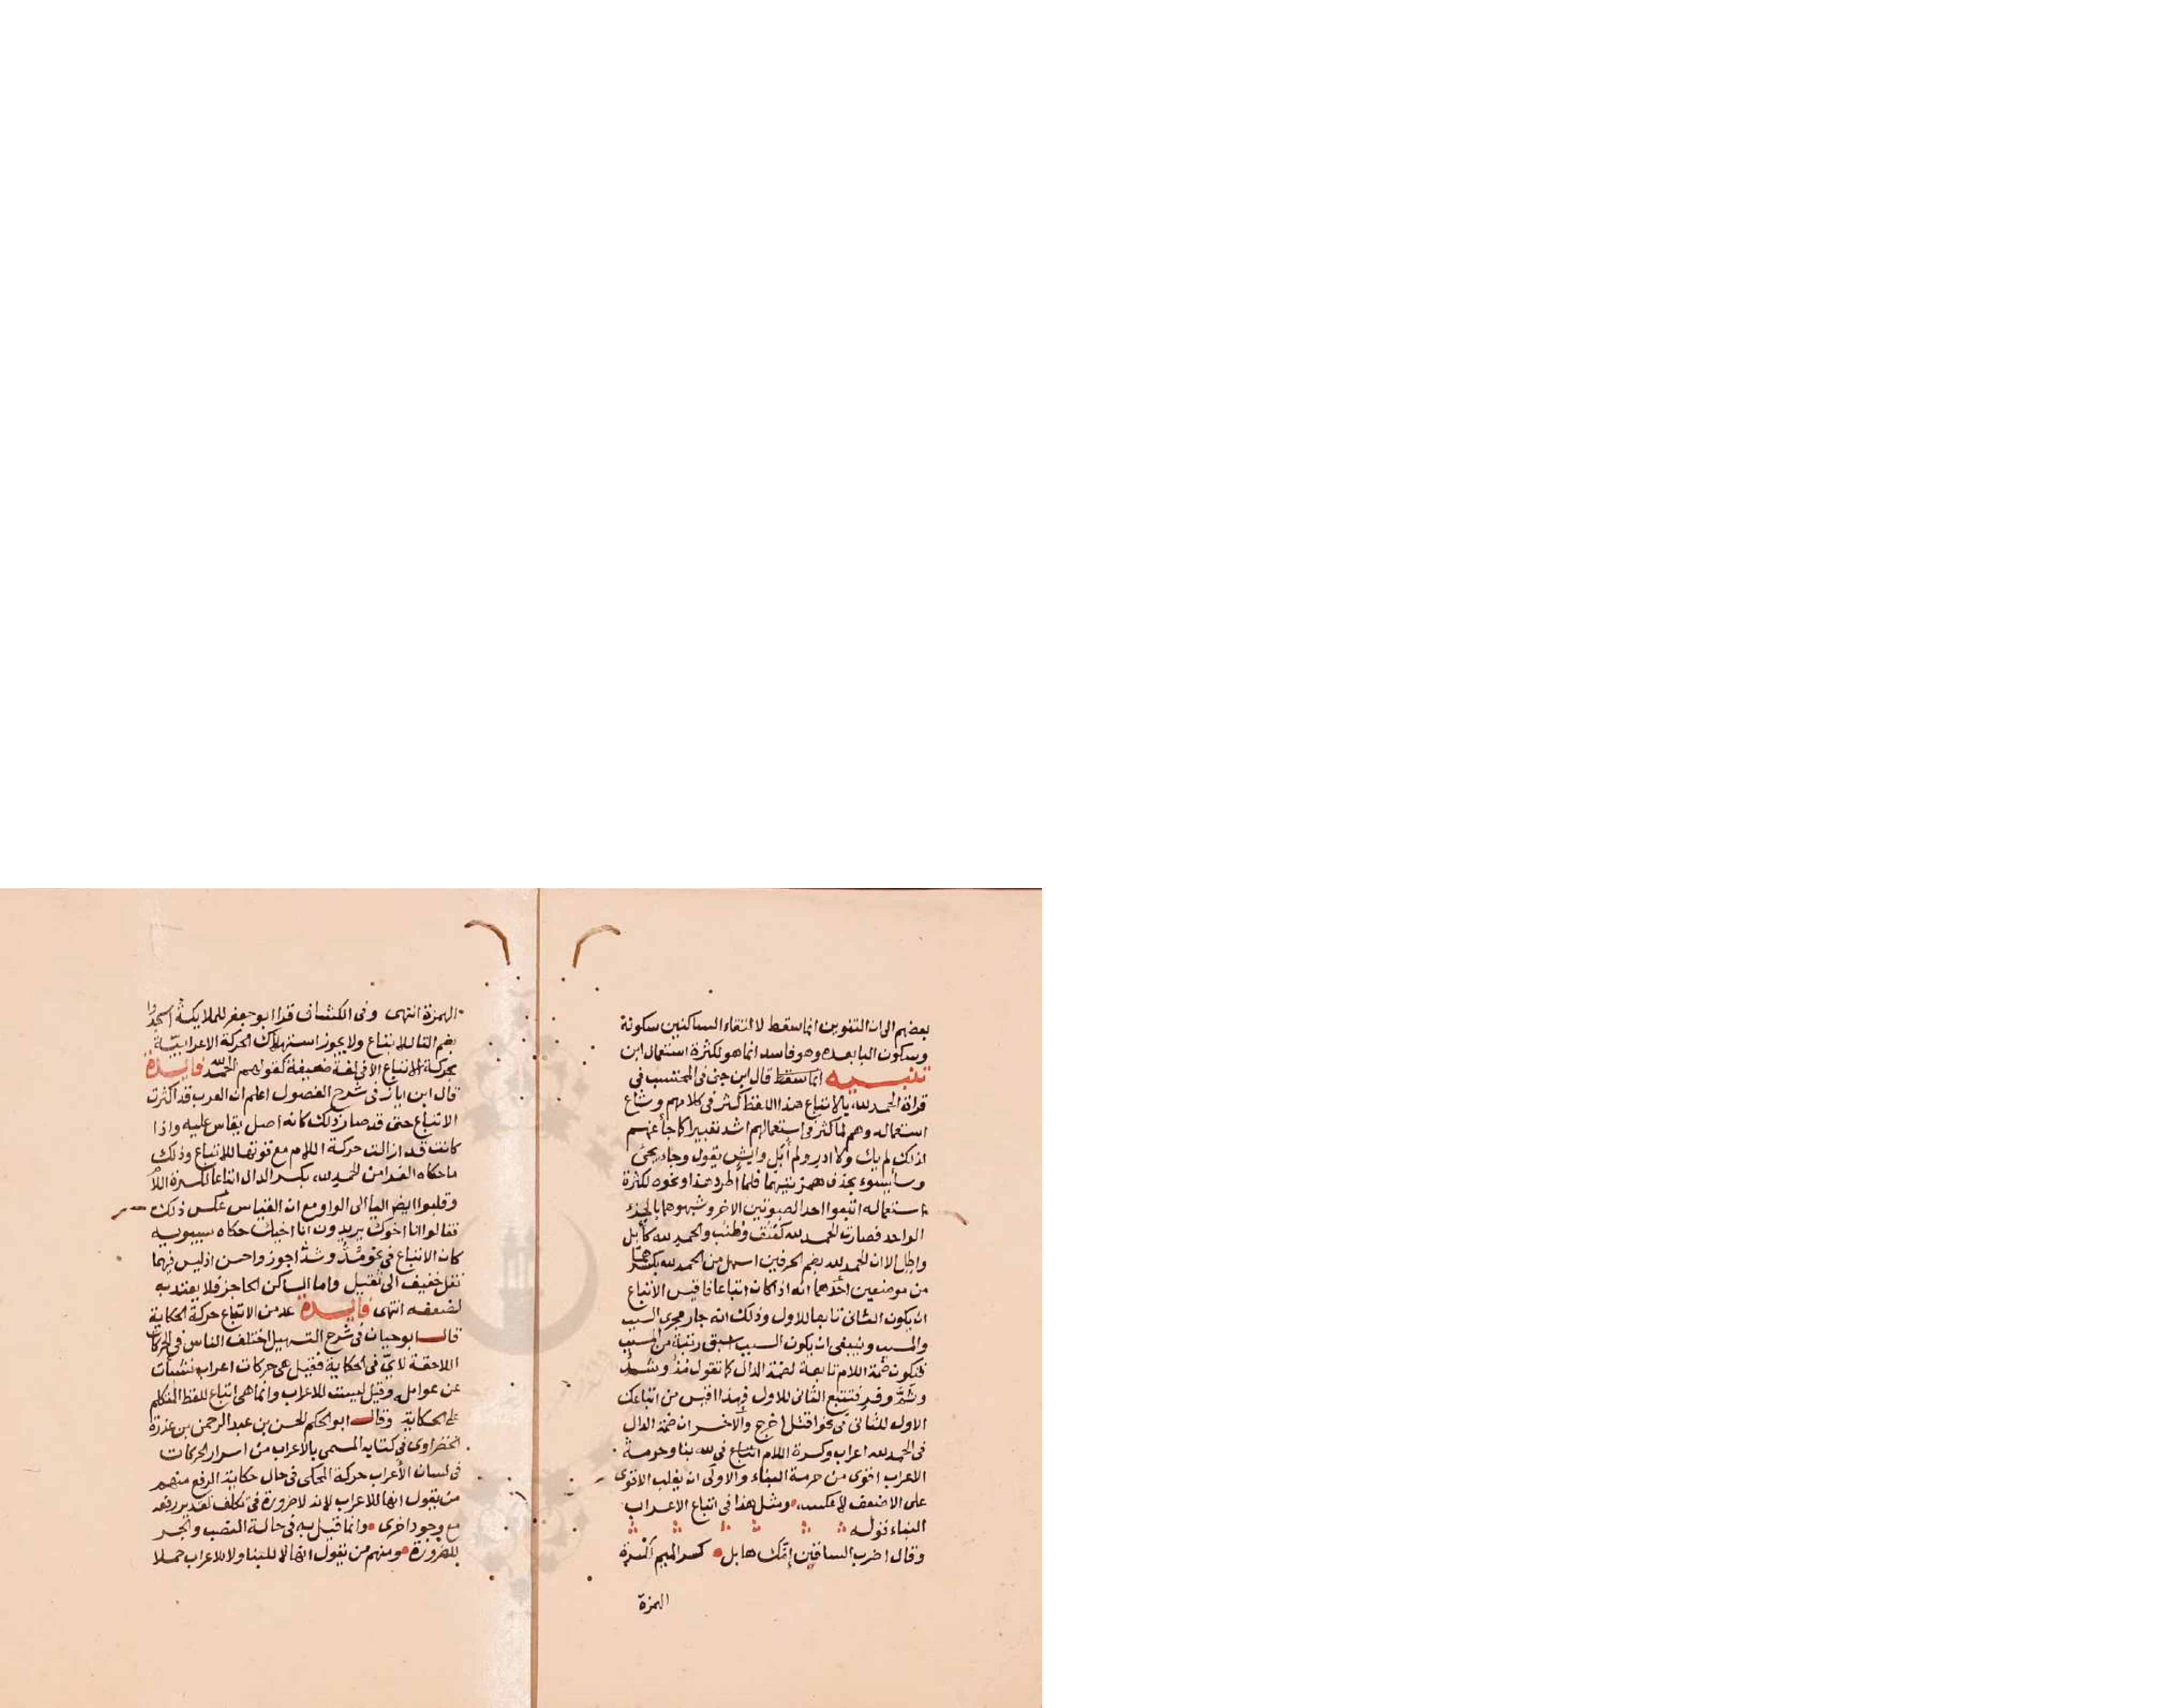 بعضهم الى ان التنوين انما سقط لالتقاء الساكنين سكونة
وسكون البا بعده وهو فاسد انما هو لكثرة استعمال ابن
تنبيه انما سقط قال ابن جنى فى المحتسب فى
قراة الحمد لله بالاتباع هذا اللفظ كثر فى كلامهم وشاع
استعماله وهم لما كثر فى استعمالهم اشد تغييرا كما جا عنهم
لذلك لم يك ولا ادر ولم أُبَل وايش يقول وجا يجى
وسا يسوء بحذف همزتيهما فلما اطرد هذا ونحوه لكثرة
استعماله اتبعوا احد الصوتين الاخر وشبهوهما بالجزء
الواحد فصارت الحمد لله كعُنُق وطُنُب والحمد لله كابل
واطل الا ان الحمد لله بضم الحرفين اسهل من الحمد لله بكسرهما
من موضعين احدهما انه اذا كان اتباعا فاقيس الاتباع
ان يكون الثانى تابعا للاول وذلك انه جار مجرى السبب
والمسبب وينبغى ان يكون السبب اسبق رتبة من المسبب
فتكون ضمة اللام تابعة لضمة الدال كما تقول مُدُّ وشُدُّ
وشَمَّ وفِرِّ فتتبع الثانى للاول فهذا اقيس من اتباعك
الاول للثانى فى نحو اقتل اخرج والاخر ان ضمة الدال
فى الحمد لله اعراب وكسرة اللام اتباع فى لله بنا وحرمة
الاعراب اقوى من حرمة البناء والاولى ان يغلب الاقوى
على الاضعف لا عكسه ومثل هذا فى اتباع الاعراب
البناء قوله
وقال اضرب الساقين إمِّك هابل كسر الميم لكسرة
الهمزة
الهمزة انتهى وفى الكشاف قرا ابو جعفر للملايكة اسجدوا
بضم التا للاتباع ولا يجوز استهلاك الحركة الاعرابيّة
بحركة الاتباع الا فى لغة ضعيفة كقولهم الحمد لله فايدة
قال ابن اياز فى شرح الفصول اعلم ان العرب قد اكثرت
الاتباع حتى قد صار ذلك كانه اصل يقاس عليه واذا
كانت قد ازالت حركة اللام مع قوتها للاتباع وذلك
ما حكاه الفرا من الحمد لله بكسر الدال اتباعا لكسرة اللام
وقلبوا ايضا اليا الى الواو مع ان القياس عكس ذلك
فقالوا انا اخوك يريدون انا اخيك حكاه سيبويه
كان الاتباع فى نحو مُدُّ وشدُّ اجوز واحسن اذ ليس فيهما
نقل خفيف الى ثقيل واما الساكن الحاجز فلا يعتد به
لضعفه انتهى فايدة عد من الاتباع حركة الحكاية
قال ابو حيان فى شرح التسهيل اختلف الناس فى الحركات
اللاحقة لاىّ فى الحكاية فقيل هى حركات اعراب نشات
عن عوامل وقيل ليست للاعراب وانما هى اتباع للفظ المتكلم
على الحكاية وقال ابو الحكم الحسن بن عبد الرحمن بن عذرة
الخضراوى فى كتابه المسمى بالاعراب من اسرار الحركات
فى لسان الأعراب حركة المحكى فى حال حكاية الرفع منهم
من يقول انها للاعراب لانه لا ضرورة فى تكلف تقدير رفعه
مع وجود اخرى وانما قيل به فى حالة النصب والجر
للضرورة ومنهم من يقول انها لا للبنا ولا للاعراب حملا